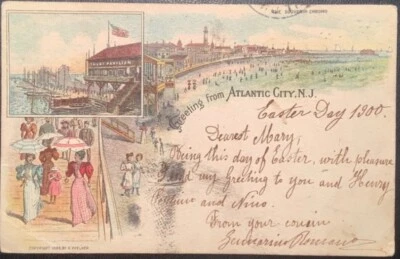 Greeting from ATLANTIC CITY, N.J.
Easter Day 1900.
Dearest Mary,
Being this day of Easter, with pleasure
I send my Greeting to you and Henry
and Nino.
From your cousin
Romano